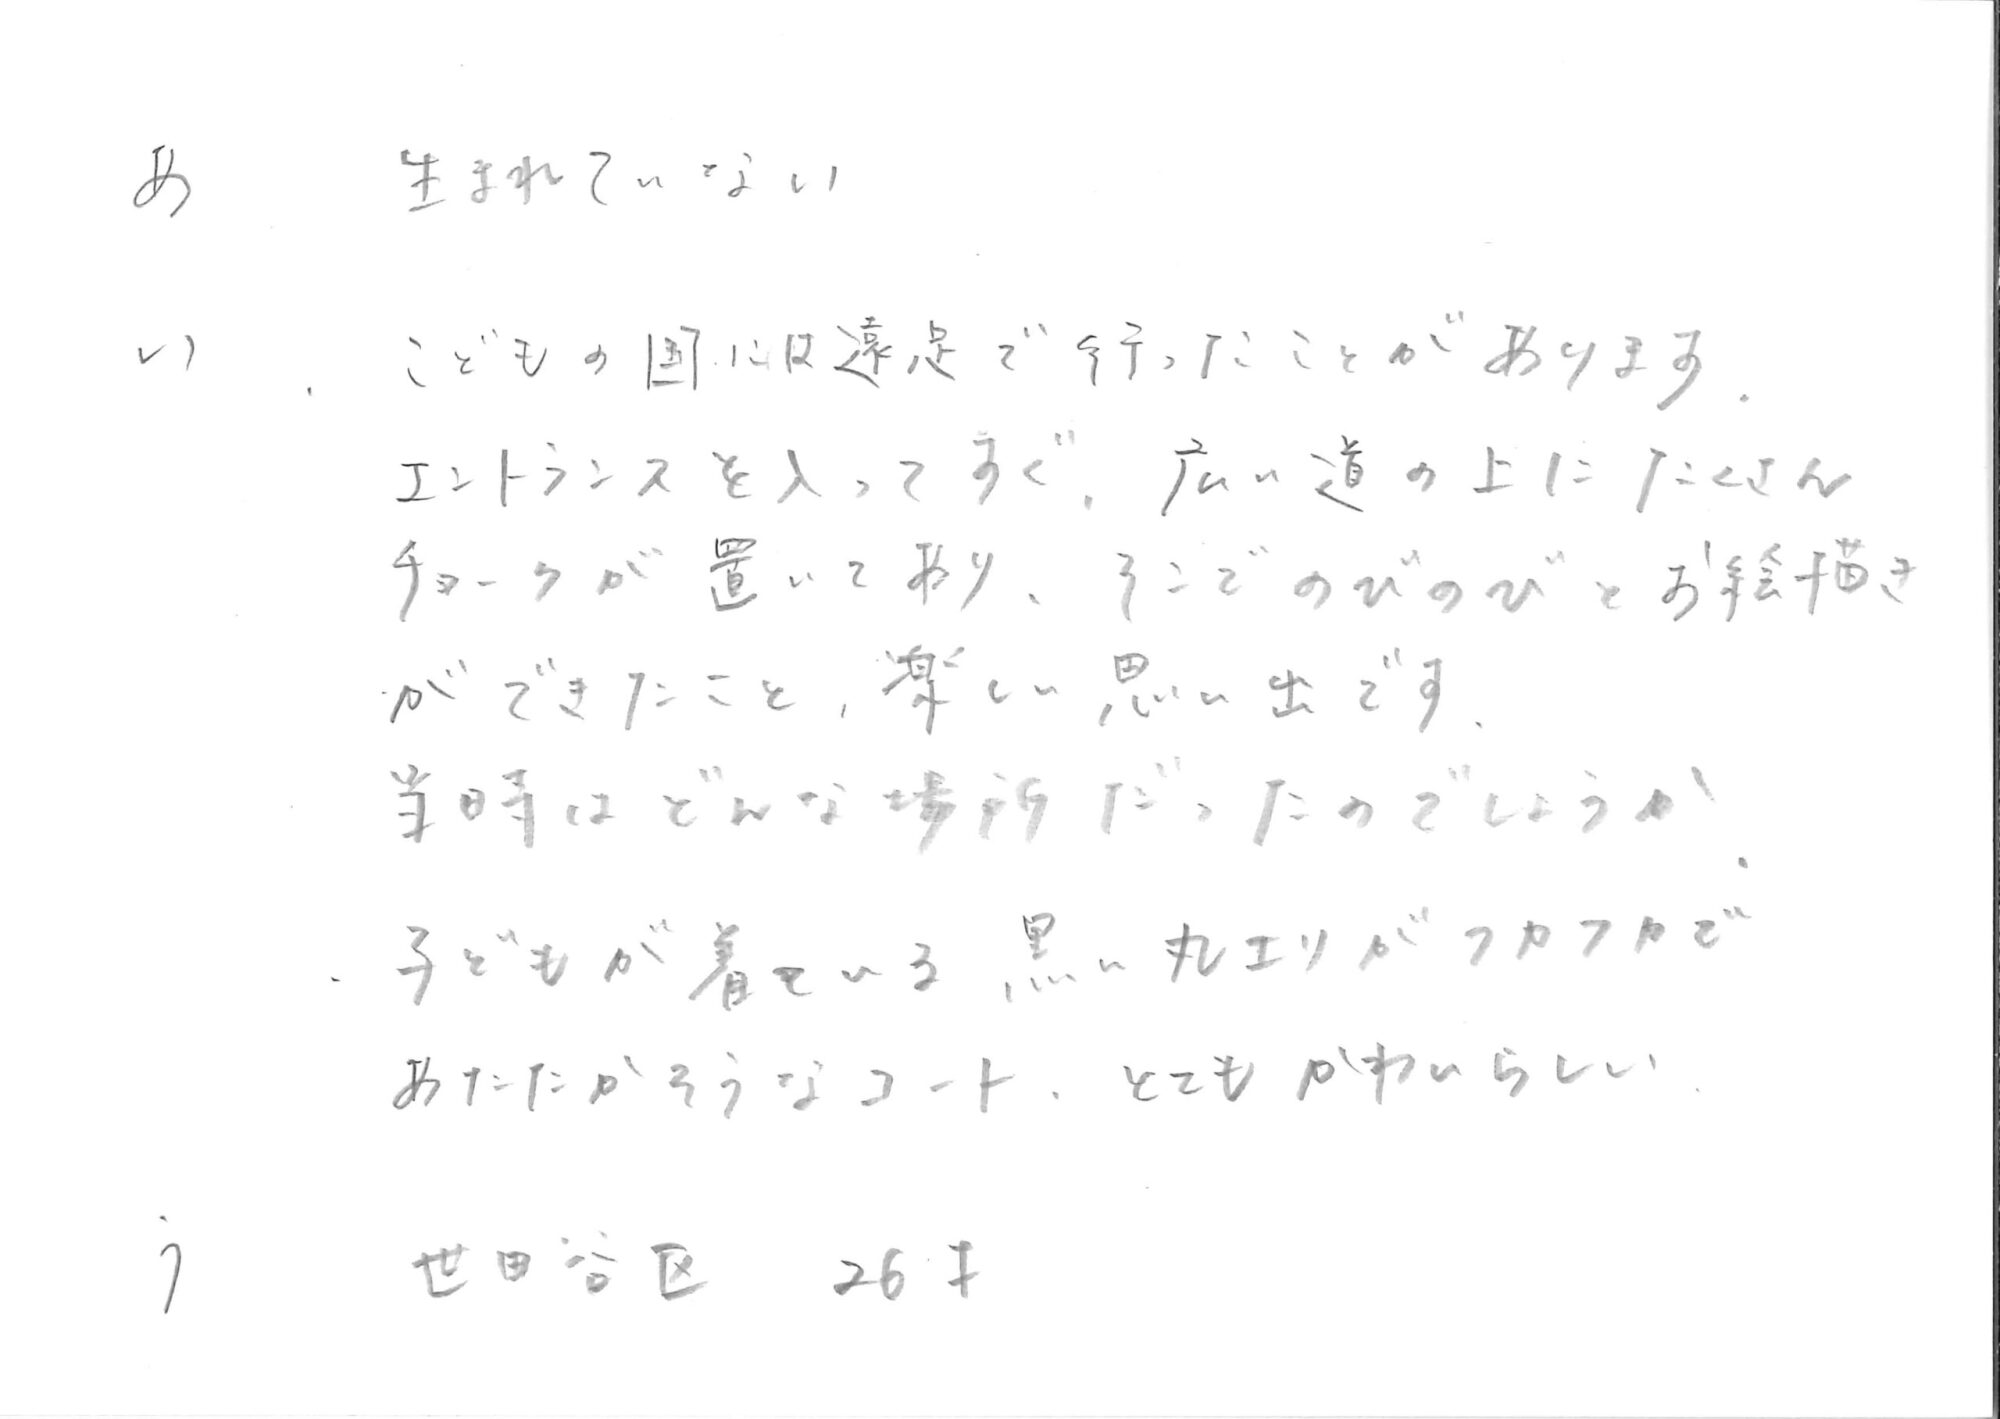 あ 生まれていない
い ・こどもの国には遠足で行ったことがあります.
エントランスを入ってすぐ、広い道の上にたくさん
チョークが置いてあり、そこでのびのびとお絵描き
ができたこと、楽しい思い出です.
当時はどんな場所だったのでしょうか.
・子どもが着ている黒い丸エリがフカフカで
あたたかそうなコート、とてもかわいらしい.
う 世田谷区 26才